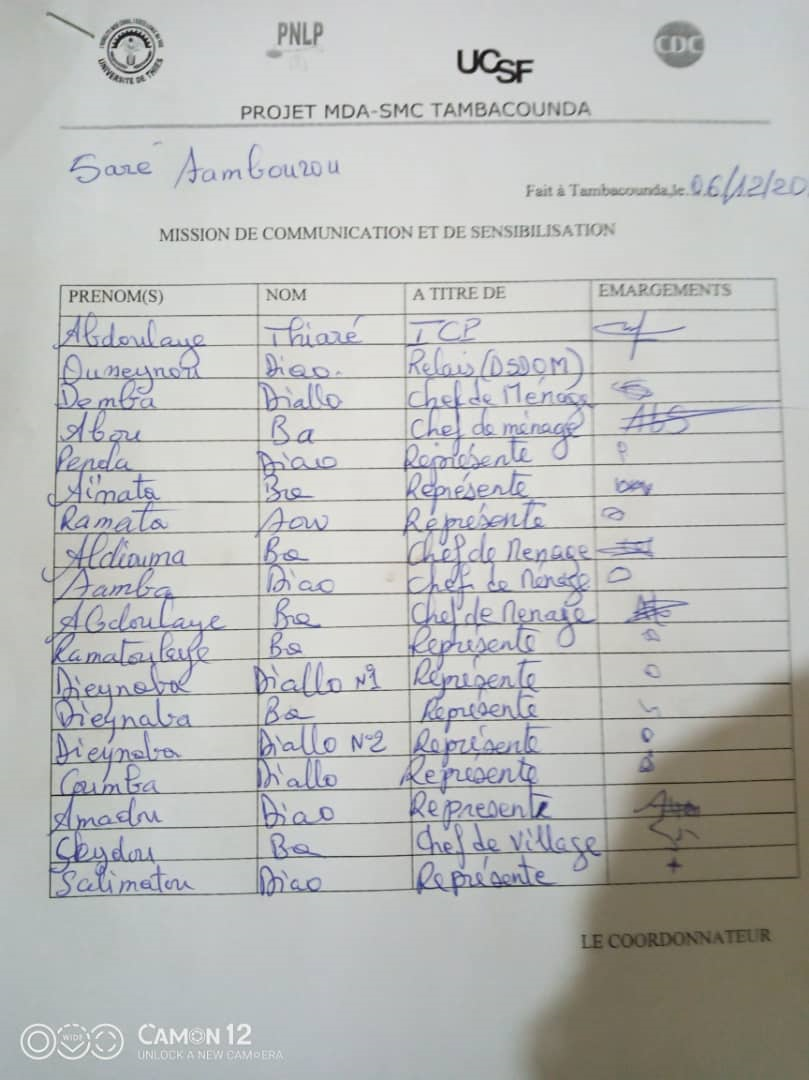 UNIVERSITE DE THIES
PNLP
UCSF
CDC
PROJET MDA-SMC TAMBACOUNDA
Saré
Fait à Tambacounda,le. 06/12/20
MISSION DE COMMUNICATION ET DE SENSIBILISATION
PRENOM(S) NOM A TITRE DE EMARGEMENTS
Abdoulaye Thiaré ICP
Ousseynou Diao. Relais (DSDOM)
Demba Diallo Chef de Ménage
Abou Ba Chef de ménage
Penda Diao Représente
Aïmata Ba Représente
Ramata Sow Représente
Aldiouma Ba Chef de Menage
Samba Diao Chef de Ménage
Abdoulaye Ba Chef de Menage
Ramatoulaye Ba Représente
Dieynaba Diallo N°1 Représente
Dieynaba Ba Représente
Dieynaba Diallo N°2 Représente
Coumba Diallo Represente
Amadou Diao Represente
Seydou Ba Chef de village
Salimatou Diao Représente +
LE COORDONNATEUR
WIDE CAMON 12
UNLOCK A NEW CAMERA